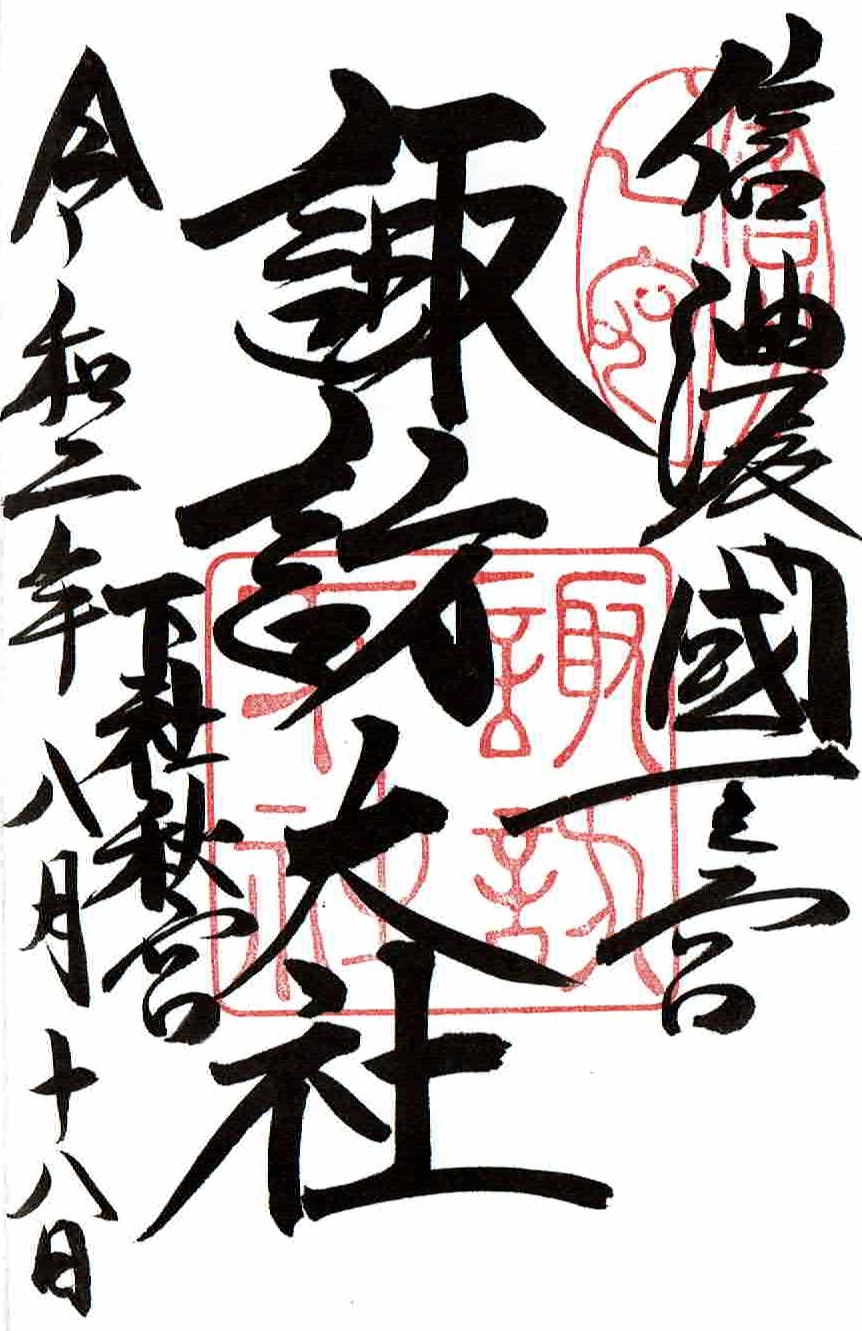 信濃國一之宮
諏訪大社
下社秋宮
令和二年八月十八日
諏訪
下社